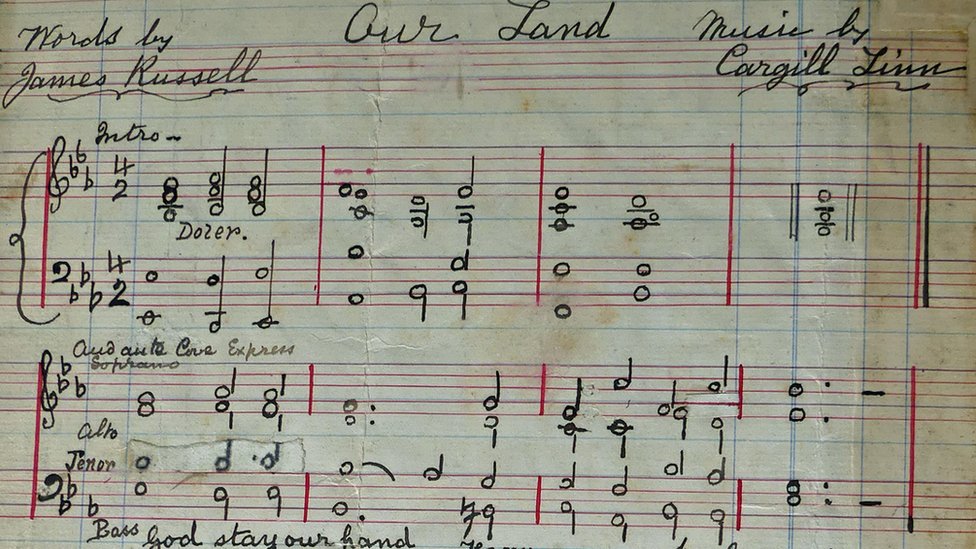 Our Land
Words by
James Russell
Music by
Cargill Linn
Intro
4
2
Doler.
4
2
Andante Con Express
Soprano
Alto
Tenor
Bass
God stay our hand